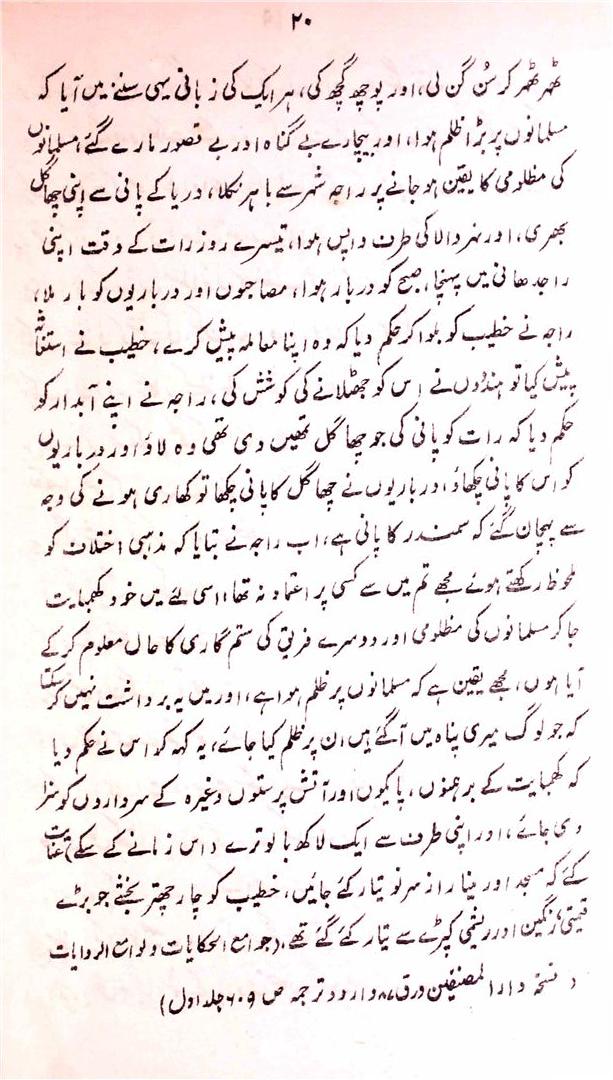 ۲۰
ٹھہر ٹھہر کر سُن گن لی، اور پوچھ گچھ کی، ہر ایک کی زبانی یہی سننے میں آیا کہ
مسلمانوں پر بڑا ظلم ہوا، اور بیچارے بے گناہ اور بے قصور مارے گئے، مسلمانوں
کی مظلومی کا یقین ہو جانے پر راجہ شہر سے باہر نکلا، دریا کے پانی سے اپنی چھاگل
بھری، اور نہر والا کی طرف واپس ہوا، تیسرے روز رات کے وقت اپنی
راجدھانی میں پہنچا، صبح کو دربار ہوا، مصاحبوں اور درباریوں کو بار ملا،
راجہ نے خطیب کو بلوا کر حکم دیا کہ وہ اپنا معاملہ پیش کرے، خطیب نے استغاثہ
پیش کیا تو ہندوں نے اس کو جھٹلانے کی کوشش کی، راجہ نے اپنے آبدار کو
حکم دیا کہ رات کو پانی کی جو چھاگل تمھیں دی تھی وہ لاؤ اور درباریوں
کو اس کا پانی چکھاؤ، درباریوں نے چھاگل کا پانی چکھا تو کھاری ہونے کی وجہ
سے پہچان گئے کہ سمندر کا پانی ہے، اب راجہ نے بتایا کہ مذہبی اختلاف کو
ملحوظ رکھتے ہوئے مجھے تم میں سے کسی پر اعتماد نہ تھا، اسی لئے میں خود کھبایت
جا کر مسلمانوں کی مظلومی اور دوسرے فریق کی ستم گاری کا حال معلوم کر کے
آیا ہوں، مجھے یقین ہے کہ مسلمانوں پر ظلم ہوا ہے، اور میں یہ برداشت نہیں کر سکتا
کہ جو لوگ میری پناہ میں آ گئے ہیں ان پر ظلم کیا جائے، یہ کہہ کو اس نے حکم دیا
کہ کھبایت کے برہمنوں، پاکیوں اور آتش پرستوں وغیرہ کے سرداروں کو سزا
دی جائے، اور اپنی طرف سے ایک لاکھ بالوترے (اس زمانے کے سکے) عنایت
کئے کہ مسجد اور مینار از سر نو تیار کئے جائیں، خطیب کو چار چھتر بخشے جو بڑے
قیمتی، رنگین اور ریشمی کپڑے سے تیار کئے گئے تھے، (جوامع الحکایات و لوامع الروایات
(نسخۂ دارا المصنفین ورق ۸۷ و اردو ترجمہ ص ۶۰۹ جلد اول)